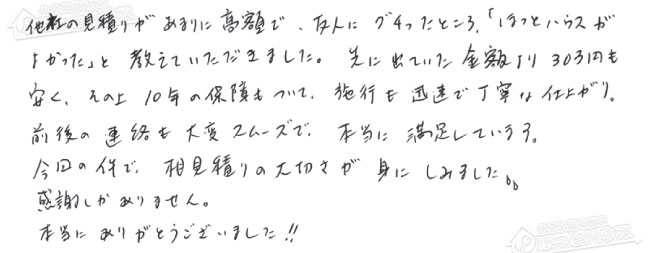 他社の見積りがあまりに高額で、友人にグチったところ、「ほっとハウスが
よかった」と教えていただきました。先に出ていた金額より30万円も
安く、その上10年の保障もついて、施行も迅速で丁寧な仕上がり。
前後の連絡も大変スムーズで、本当に満足しています。
今回の件で、相見積りの大切さが身にしみました。
感謝しかありません。
本当にありがとうございました!!